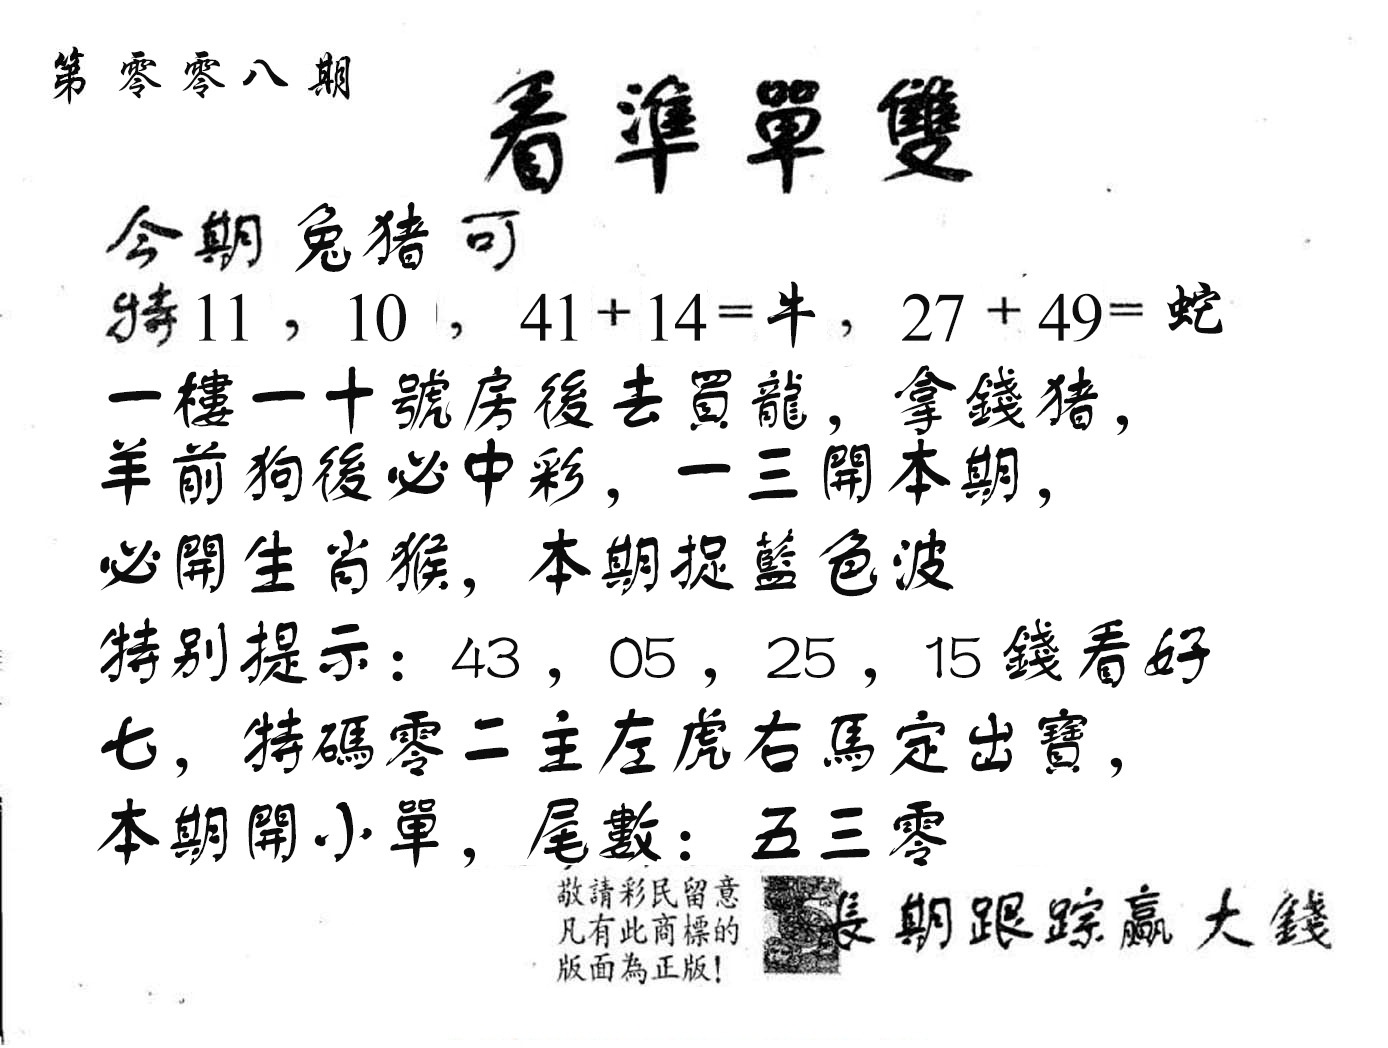 第零零八期
看準單雙
今期兔猪可
特11，10，41+14=牛，27+49=蛇
一樓一十號房後去買龍，拿錢猪，
羊前狗後必中彩，一三開本期，
必開生肖猴，本期捉藍色波
特别提示：43，05，25，15錢看好
七，特碼零二主左虎右馬定出寶，
本期開小單，尾數：五三零
敬請彩民留意
凡有此商標的
版面為正版！
長期跟踪赢大錢